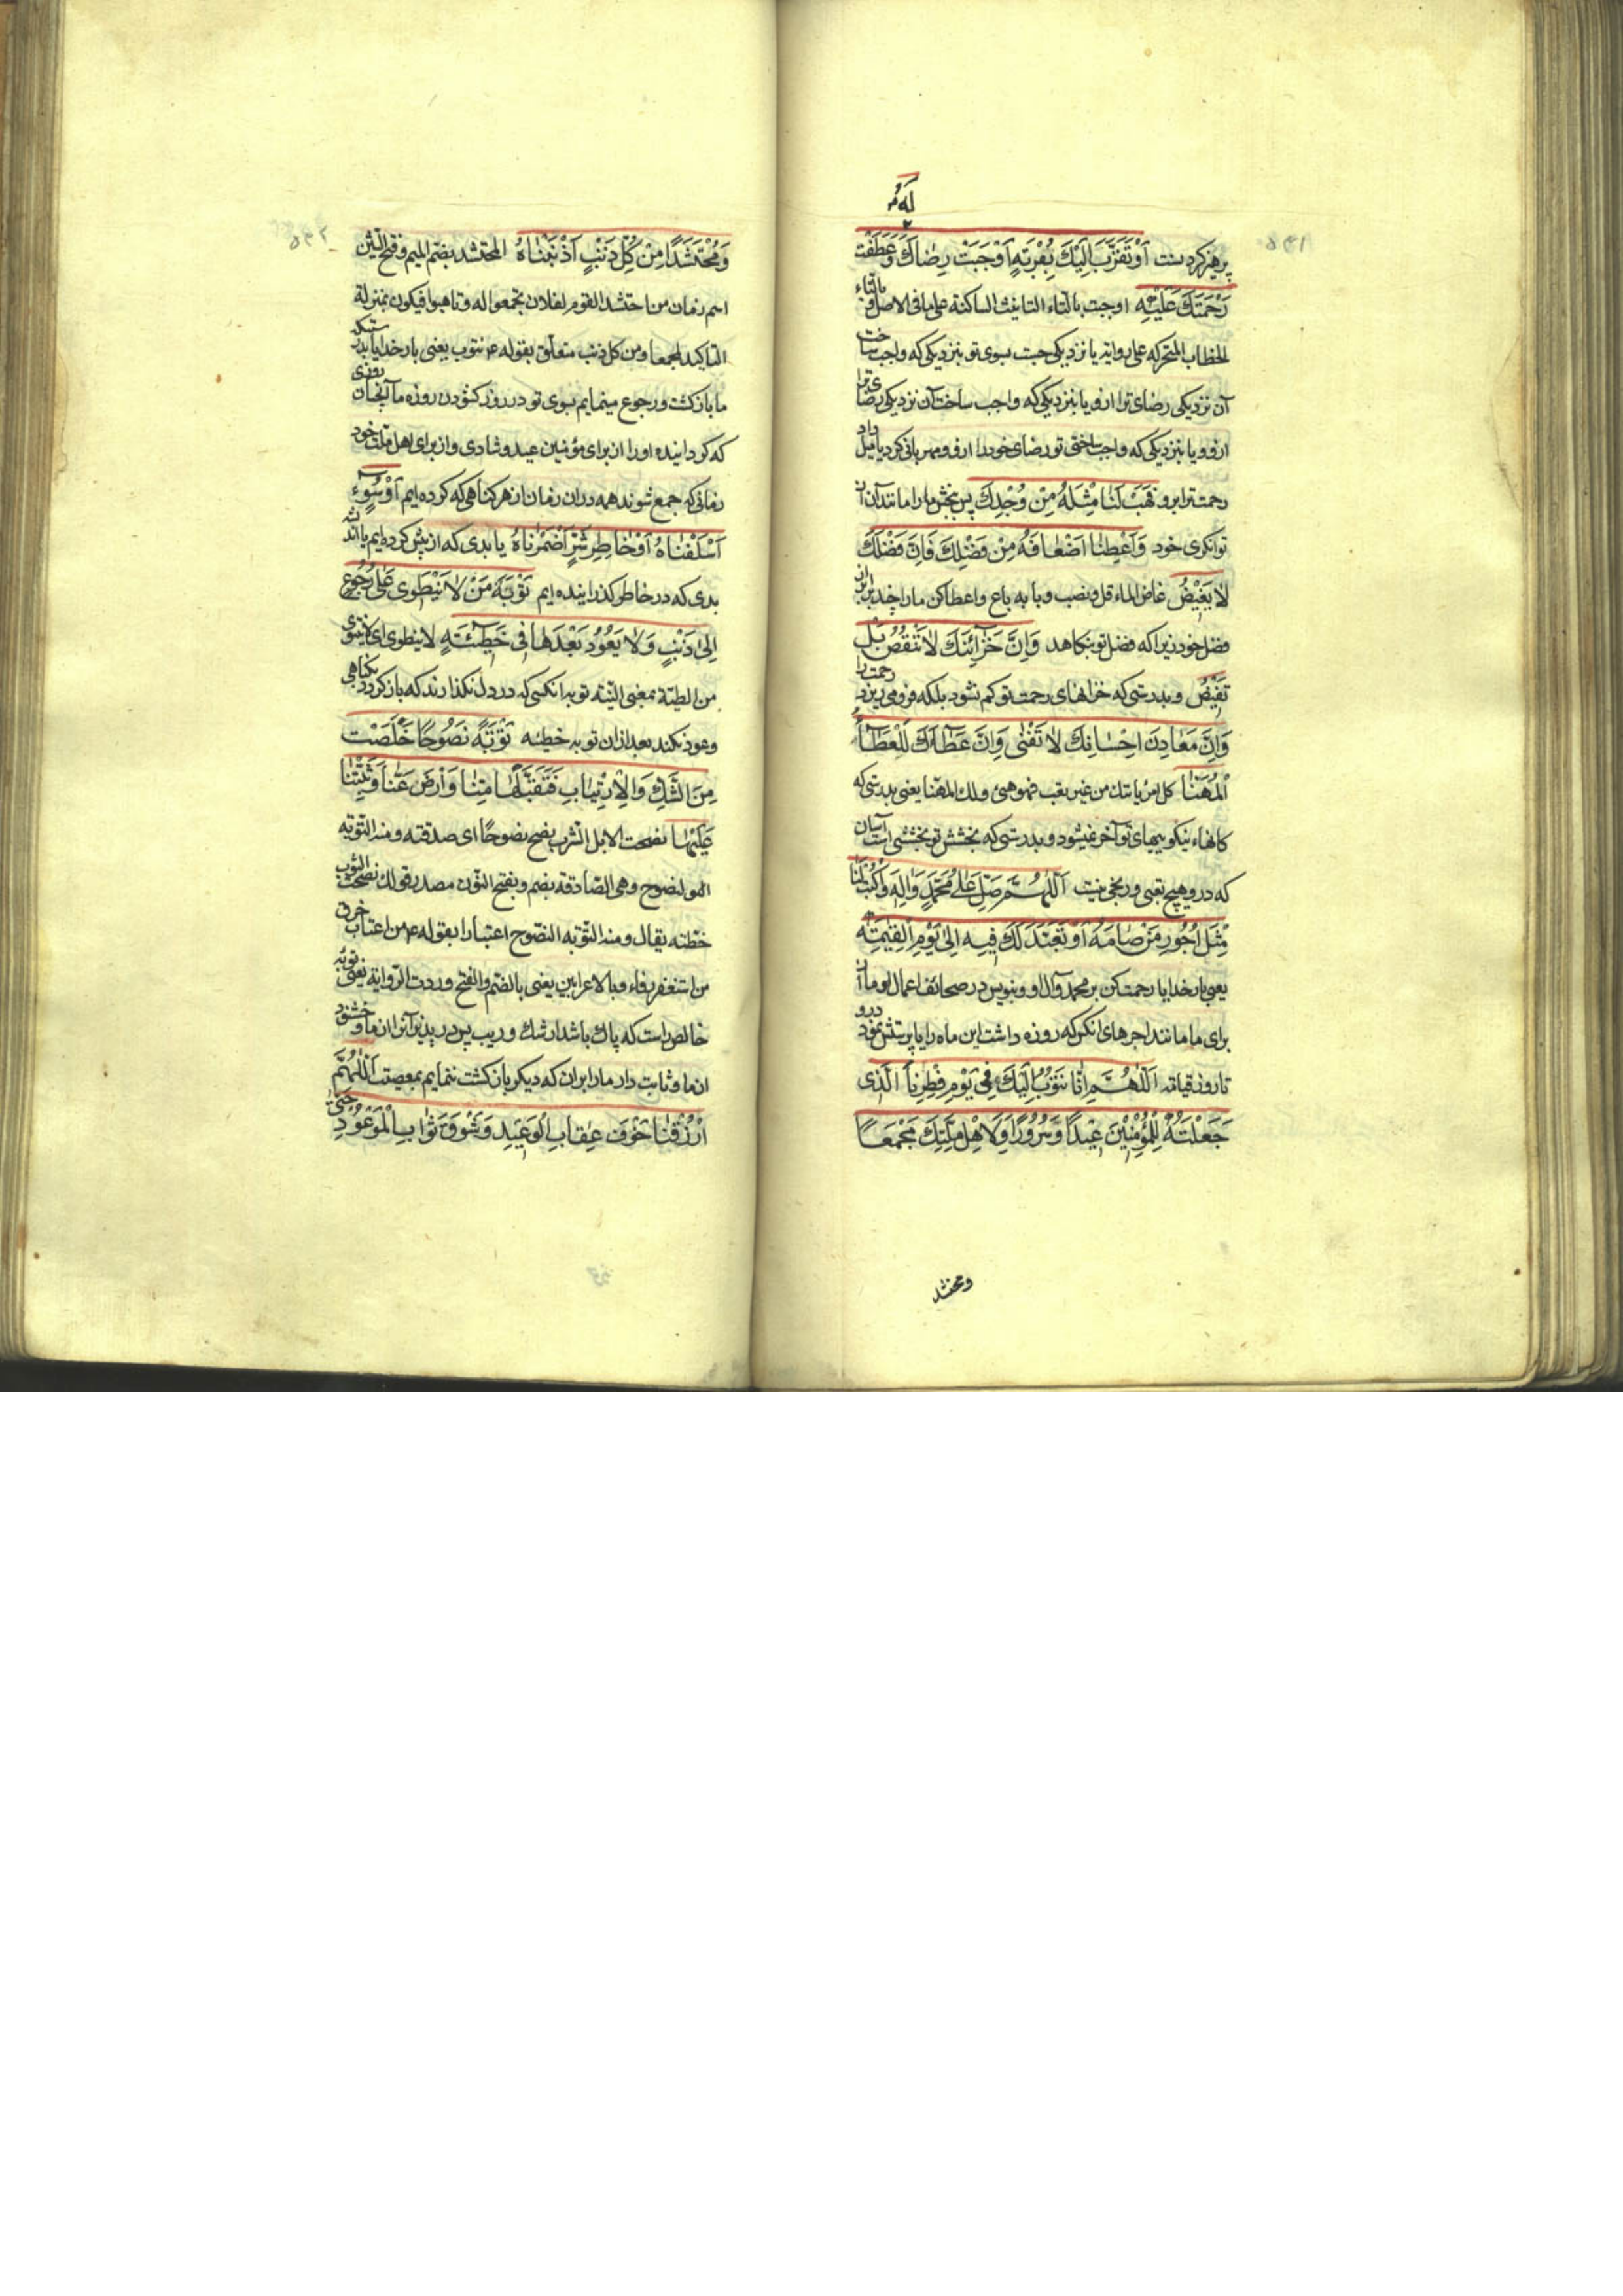 لَهُ
پرهیز کردنت اَوْ تَقَرَّبَ اِلَیْكَ بِقُرْبَةٍ اَوْجَبَتْ رِضٰاكَ وَعَطَفَتْ
رَحْمَتَكَ عَلَیْهِ اوجبت بالتاء التانیث الساكنة علی ما فی الاصل و بالتاء
الخطاب المتحركه علی روایة یا نزدیكی جست بسوی تو بنزدیكی كه واجب ساخت
آن نزدیكی رضای ترا ازو و یا بنزدیكی كه واجب ساخت آن نزدیكی رضای ترا
ازو و یا بنزدیكی كه واجب ساختی تو رضای خود را ازو و مهربانی كرد یا میل داد
رحمت ترا برو فَهَبْ لَنٰا مِثْلَهُ مِنْ وُجْدِكَ پس ببخش ما را مانند آن از
توانكری خود وَاَعْطِنٰا اَضْعٰافَهُ مِنْ فَضْلِكَ فَاِنَّ فَضْلَكَ
لٰا یَغیْضُ غاض الماء قل و نصب و بابه باع و اعطا كن ما را چند برابر آن از
فضل خود زیرا كه فضل تو نكاهد وَاِنَّ خَزٰآئِنَكَ لٰا تَنْقُصُ بَلْ
تَفیْضُ و بدرستی كه خزانهای رحمت تو كم نشود بلكه فرو می ریزد رحمت را
وَاِنَّ مَعٰادِنَ اِحْسٰانِكَ لٰا تَفْنٰی وَاِنَّ عَطٰآءَكَ لَلْعَطٰآءُ
اْلمُهَنّٰا كل امر یاتیك من غیر تعب فهو هنئ ولك المهنا یعنی بدرستی كه
كانهاء نیكوییهای تو آخر نمیشود و بدرستی كه بخشش تو بخششی است آسان
كه درو هیچ تعبی و رنجی نیست اَللّٰهُمَّ صَلِّ عَلٰی مُحَمَّدٍ وَاٰلِهِ وَاكْتُبْ لَنٰا
مِثْلَ اُجُورِ مَنْ صٰامَهُ اَوْ تَعَبَّدَ لَكَ فیِهِ اِلیٰ یَوْمِ اْلقِیٰمَةِ
یعنی بارخدایا رحمت كن بر محمد و آل او و بنویس در صحائف اعمال او ما از
برای ما مانند اجرهای انكس كه روزه داشت این ماه را یا پرستش نمود درو
تا روز قیامة اَللّٰهُمَّ اِنّٰا نَتُوْبُ اِلَیْكَ فیِ یَوْمِ فِطْرِنٰا الَّذی
جَعَلْتَهُ لِلْمُؤْمِنیْنَ عیْداً وَسُرُوْراً وَلِاَهْلِ مِلَّتِكَ مَجْمَعاً
ومحتشد
وَمُحْتَشَدًا مِنْ كُلِّ ذَنْبٍ اَذْنَبْنٰاهُ المحتشد بضم المیم و فتح الشین
اسم زمان من احتشد القوم لفلان تجمعوا له و تاهبوا فیكون بمنزلة
التاكید لمجمعا و من كل ذنب متعلق بقوله ع نتوب یعنی بارخدایا بدرستیكه
ما بازكشت و رجوع مینمایم بسوی تو در روز كشودن روزه ما آنچنان روزی
كه كردانیده او را از برای مؤمنین عید و شادی و از برای اهل ملت خود
زمانی كه جمع شوند همه در ان زمان از هر كناهی كه كرده ایم اَوْ سُوْءٍ
اَسْلَفْنٰاهُ اَوْ خٰاطِرِ شَرٍّ اَضْمَرْنٰاهُ یا بدی كه از پیش كرده ایم یا اندیشه
بدی كه در خاطر كذرانیده ایم تَوْبَةَ مَنْ لٰا یَنْطَوِی عَلٰی رُجُوعٍ
اِلیٰ ذَنْبٍ وَلٰا یَعُوْدُ بَعْدَهٰا فیِ خَطیْئَةٍ لا ینطوی ای لا ینوی
من الطیة بمعنی النیة توبه انكسی كه در دل نكذارند كه باز كردد بكناهی
و عود نكند بعد از ان توبه خطیئه تَوْبَةً نَصُوْحًا خَلَصَتْ
مِنَ الشَّكِّ وَاْلاِرْتِیٰابِ فَتَقَبَّلْهٰا مِنّٰا وَاْرضَ عَنّٰا وَثَبِّتْنٰا
عَلَیْهٰا نصحت الابل الشرب ینصح نصوحًا ای صدقته و منه التوبة
النصوح وهی الصادقة بضم و بفتح النون مصدر قولك نصحت الثوب
خطته یقال و منه التوبة النصوح اعتبارا بقوله ع من اغتاب خرق
من استغفر رفاء و بالاعرابین یعنی بالضم و الفتح وردت الروایة یعنی توبه
خالص است كه پاك باشد از شك و ریب پس در پذیر آنرا از ما و خشنود
از ما و ثابت دار ما را بران كه دیكر بازكشت ننمایم بمعصیت اَللّٰهُمَّ
اْرزُقْنٰا خَوْفَ عِقٰابِ الْوَعیْدِ وَشَوْقَ ثَوٰابِ اْلمَوْعُوْدِ حَتّٰی